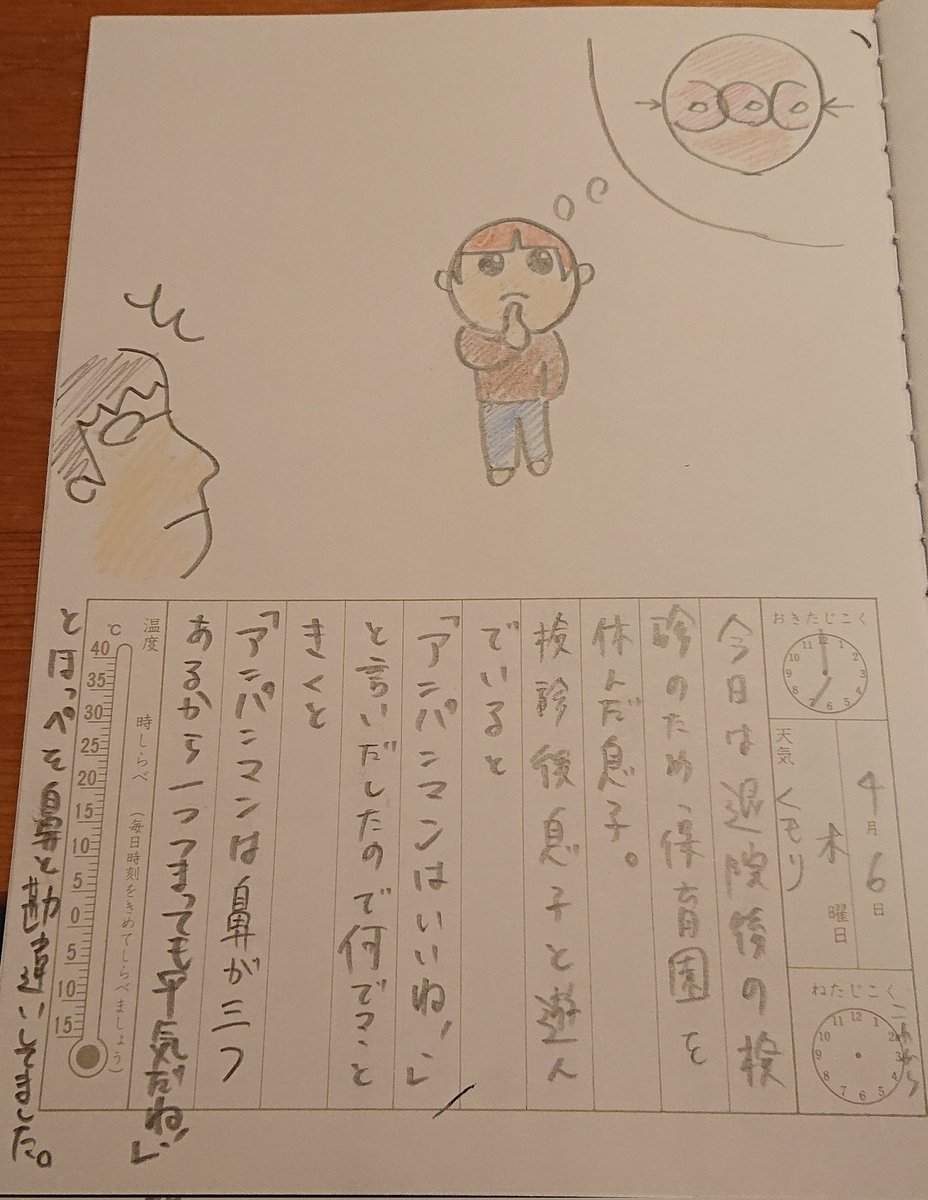 おきたじこく
12 1 2 3 4 5 6 7 8 9 10 11
4月6日
木曜日
天気 くモリ
ねたじこく
12 1 2 3 4 5 6 7 8 9 10 11
今日は退院後の検
診のため保育園を
休んだ息子。
検診後息子と遊ん
でいると
「アンパンマンはいいね、」
と言いだしたので何で?と
きくと
「アンパンマンは鼻が三つ
あるから一つつまっても平気だね、」
温度 時しらべ (毎日時刻をきめてしらべましょう)
℃
40
35
30
25
20
15
10
5
0
5
10
15
とほっぺを鼻と勘違いしてました。